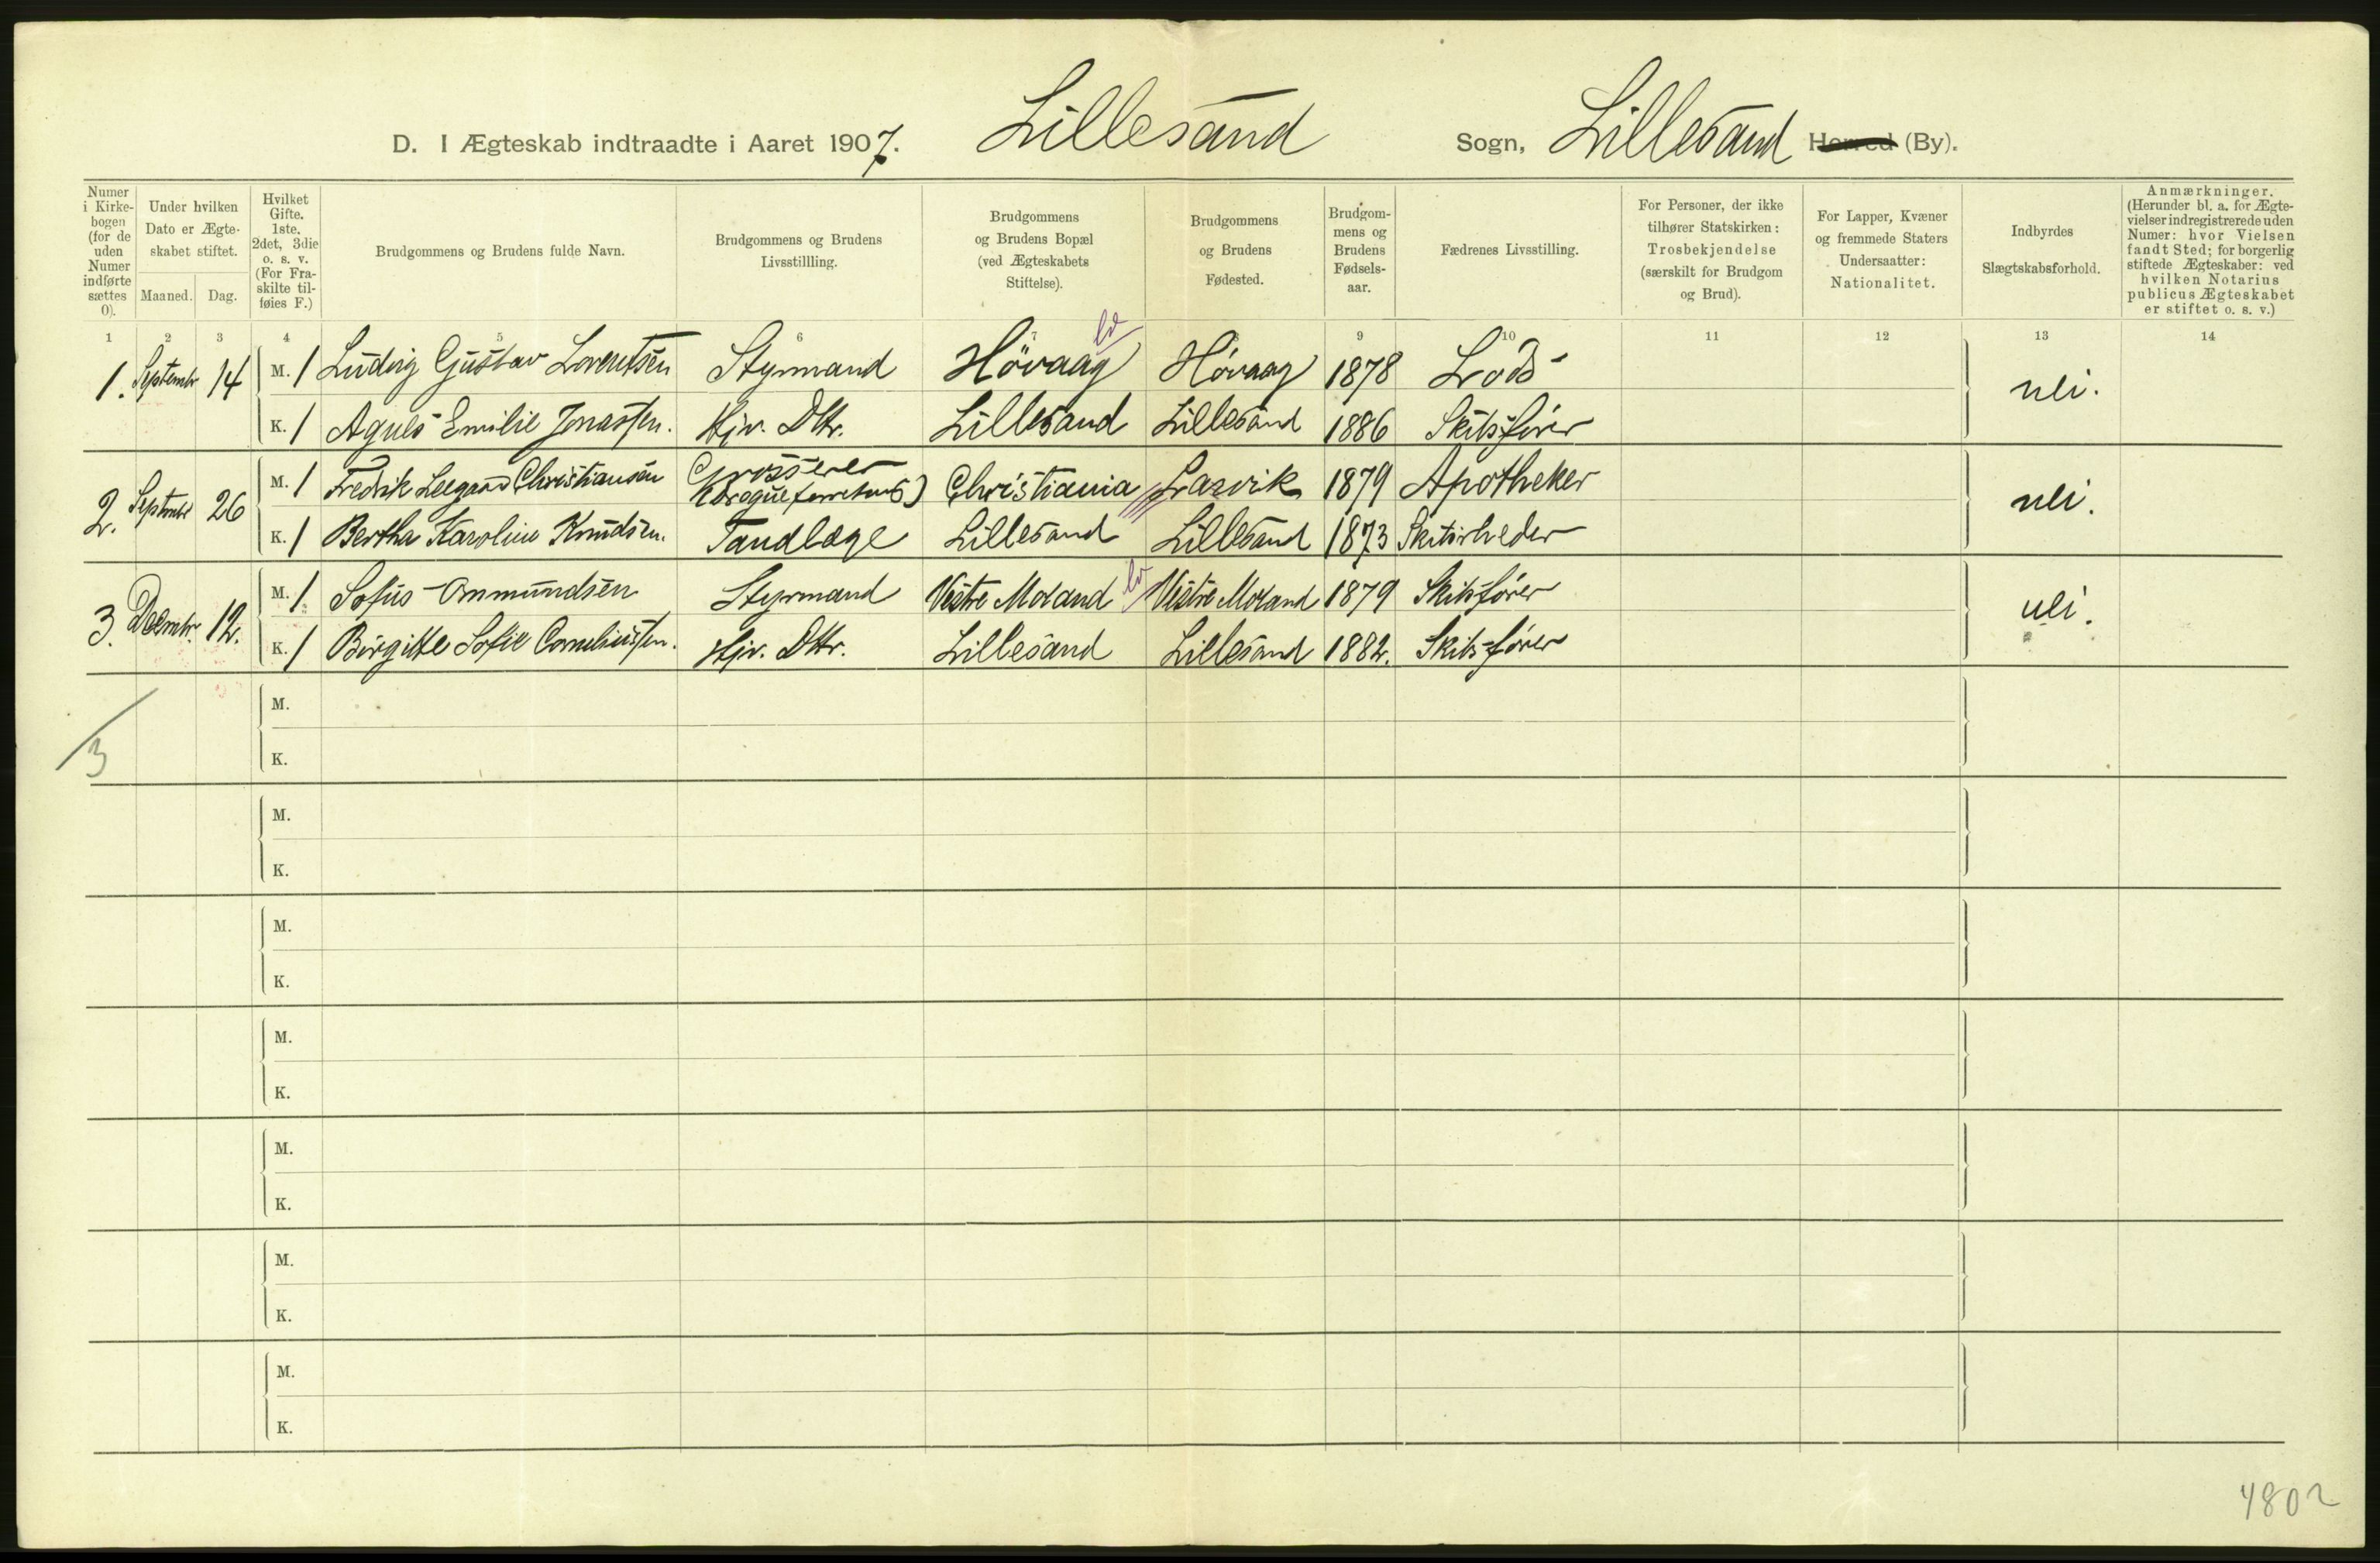 D. I Ægteskab indtraadte i Aaret 1907. Lillesand Sogn, Lillesand Herred (By).
Numer i Kirke-
bogen
(for de
uden
Numer
indførte
sættes
0).
Under hvilken
Dato er Ægte-
skabet stiftet.
Maaned. Dag.
Hvilket
Gifte.
1ste.
2det, 3die
o. s. v.
(For Fra-
skilte til-
føies F.)
Brudgommens og Brudens fulde Navn.
Brudgommens og Brudens
Livsstillling.
Brudgommens
og Brudens Bopæl
(ved Ægteskabets
Stiftelse).
Brudgommens
og Brudens
Fødested.
Brudgom-
mens og
Brudens
Fødsels-
aar.
Fædrenes Livsstilling.
For Personer, der ikke
tilhører Statskirken:
Trosbekjendelse
(særskilt for Brudgom
og Brud).
For Lapper, Kvæner
og fremmede Staters
Undersaatter:
Nationalitet.
Indbyrdes
Slægtskabsforhold.
Anmærkninger.
(Herunder bl. a. for Ægte-
vielser indregistrerede uden
Numer: hvor Vielsen
fandt Sted; for borgerlig
stiftede Ægteskaber: ved
hvilken Notarius
publicus Ægteskabet
er stiftet o. s. v.)
1 2 3 4 5 6 7 9 10 11 12 13 14
1. Septembr 14 M. 1 Ludvig Gustav Lorentsen Styrmand Høvaag Høvaag 1878 Lods nei.
K. 1 Agnes Emilie Jonassen. Hjv. Dttr. Lillesand Lillesand 1886 Skibsfører
2. Septembr 26 M. 1 Fredrik Leegaard Christiansen Grosserer Christiania Larvik 1879 Apotheker nei.
K. 1 Bertha Karoline Knudsen. Tandlæge Lillesand Lillesand 1873 Skibsrheder
3. Decembr. 12. M. 1 Sofus Ommundsen Styrmand Vestre Moland Vestre Moland 1879 Skibsfører nei.
K. 1 Birgitte Sofie Corneliussen. Hjv. Dttr. Lillesand Lillesand 1882. Skibsfører
M.
3
K.
M.
K.
M.
K.
M.
K.
M.
K.
M.
K.
M.
K.
4802